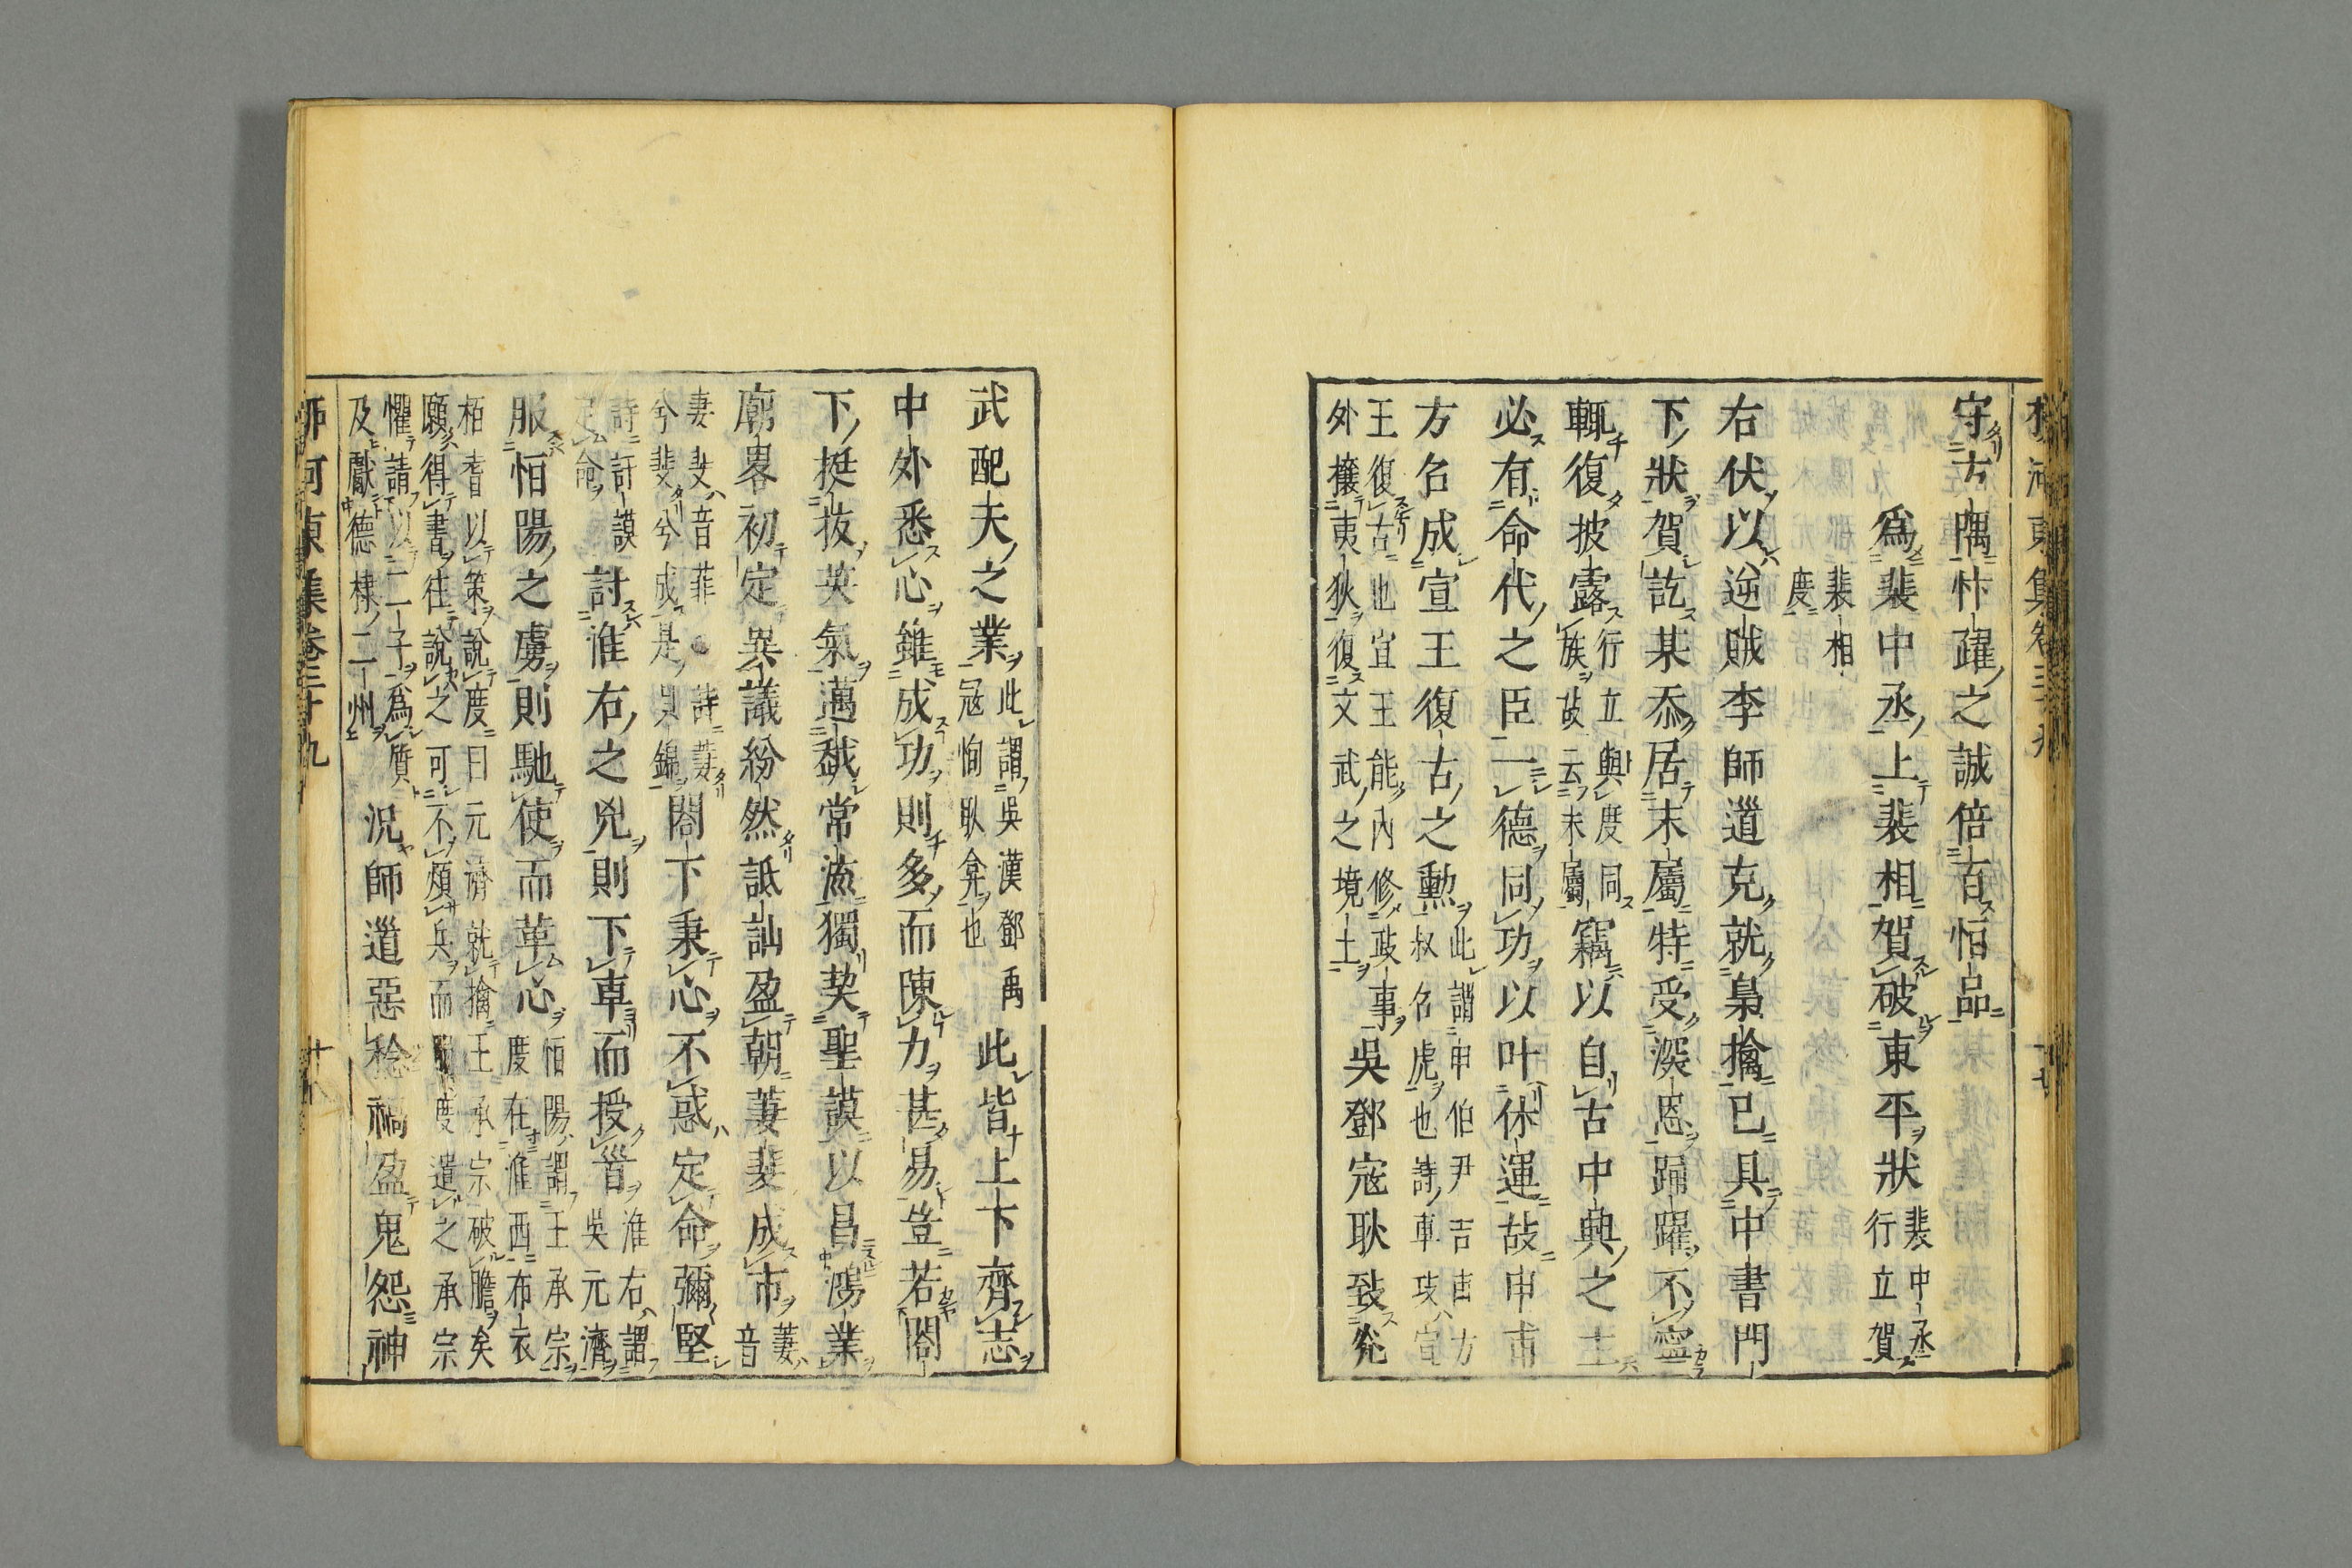 守方隅忭躍之誠倍百恒品
爲裴中丞上裴相賀破東平狀
裴中丞
行立賀
裴相
度
右伏以逆賊李師道克就梟擒已具中書門
下狀賀訖某忝居末屬特受深恩踊躍不寧
輒復披露
行立與度同
族故云末屬
竊以自古中興之主
必有命代之臣一德同功以叶休運故申甫
方召成宣王復古之勲
此謂申伯尹吉甫方
叔召虎也詩車攻宣
王復古也宣王能內修政事
外攘夷狄復文武之境土
吳鄧寇耿致光
武配天之業
此謂吳漢鄧禹
寇恂耿弇也
此皆上下齊志
中外悉心雖成功則多而陳力甚易豈若閤
下挺拔英氣邁越常流獨契聖謨以昌鴻業
廟畧初定異議紛然詆訕盈朝萋斐成市
萋
音
妻斐音菲
詩萋
兮斐兮成是貝錦
閤下秉心不惑定命彌堅
詩訏謨
定命
討淮右之兇則下車而授首
淮右謂
吳元濟
服恒陽之虜則馳使而革心
恒陽謂王承宗
度在淮西布衣
栢耆以策說度曰元濟就擒王承宗破膽矣
願得書往說之可不煩兵而服度遣之承宗
懼請以二子爲質
及獻德棣二州
況師道惡稔禍盈鬼怨神
柳河東集卷三十九
十八